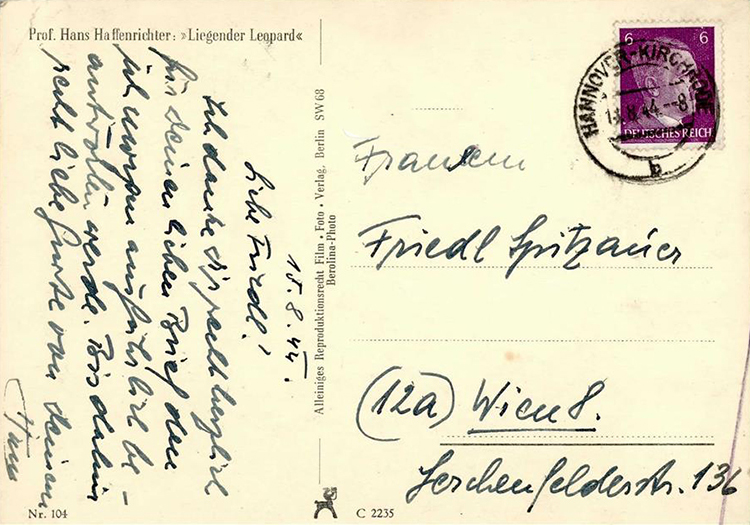 Prof. Hans Haffenrichter: »Liegender Leopard«
15.8.44.
Liebe Friedl!
Ich danke dir recht herzlich
für deinen lieben Brief den
ich morgen ausführlich be-
antworten werde. Bis dahin
recht liebe Grüße von deinem
Hans
Nr. 104
Alleiniges Reproduktionsrecht Film · Foto · Verlag, Berlin SW 68
Berolina-Photo
C 2235
6 6
DEUTSCHES REICH
HANNOVER-KIRCHRODE
.8.44.-8
b
Fräulein
Friedl Spitzauer
(12a) Wien 8.
Lerchenfelderstr. 136